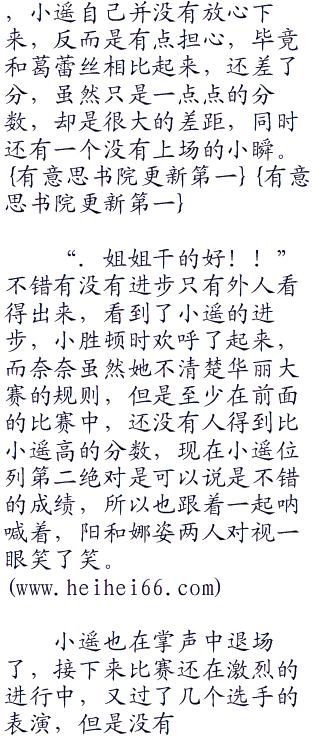 ，小遥自己并没有放心下
来，反而是有点担心，毕竟
和葛蕾丝相比起来，还差了
分，虽然只是一点点的分
数，却是很大的差距，同时
还有一个没有上场的小瞬。
{有意思书院更新第一} {有意
思书院更新第一}
“．姐姐干的好！！”
不错有没有进步只有外人看
得出来，看到了小遥的进
步，小胜顿时欢呼了起来，
而奈奈虽然她不清楚华丽大
赛的规则，但是至少在前面
的比赛中，还没有人得到比
小遥高的分数，现在小遥位
列第二绝对是可以说是不错
的成绩，所以也跟着一起呐
喊着，阳和娜姿两人对视一
眼笑了笑。
(www.heihei66.com)
小遥也在掌声中退场
了，接下来比赛还在激烈的
进行中，又过了几个选手的
表演，但是没有